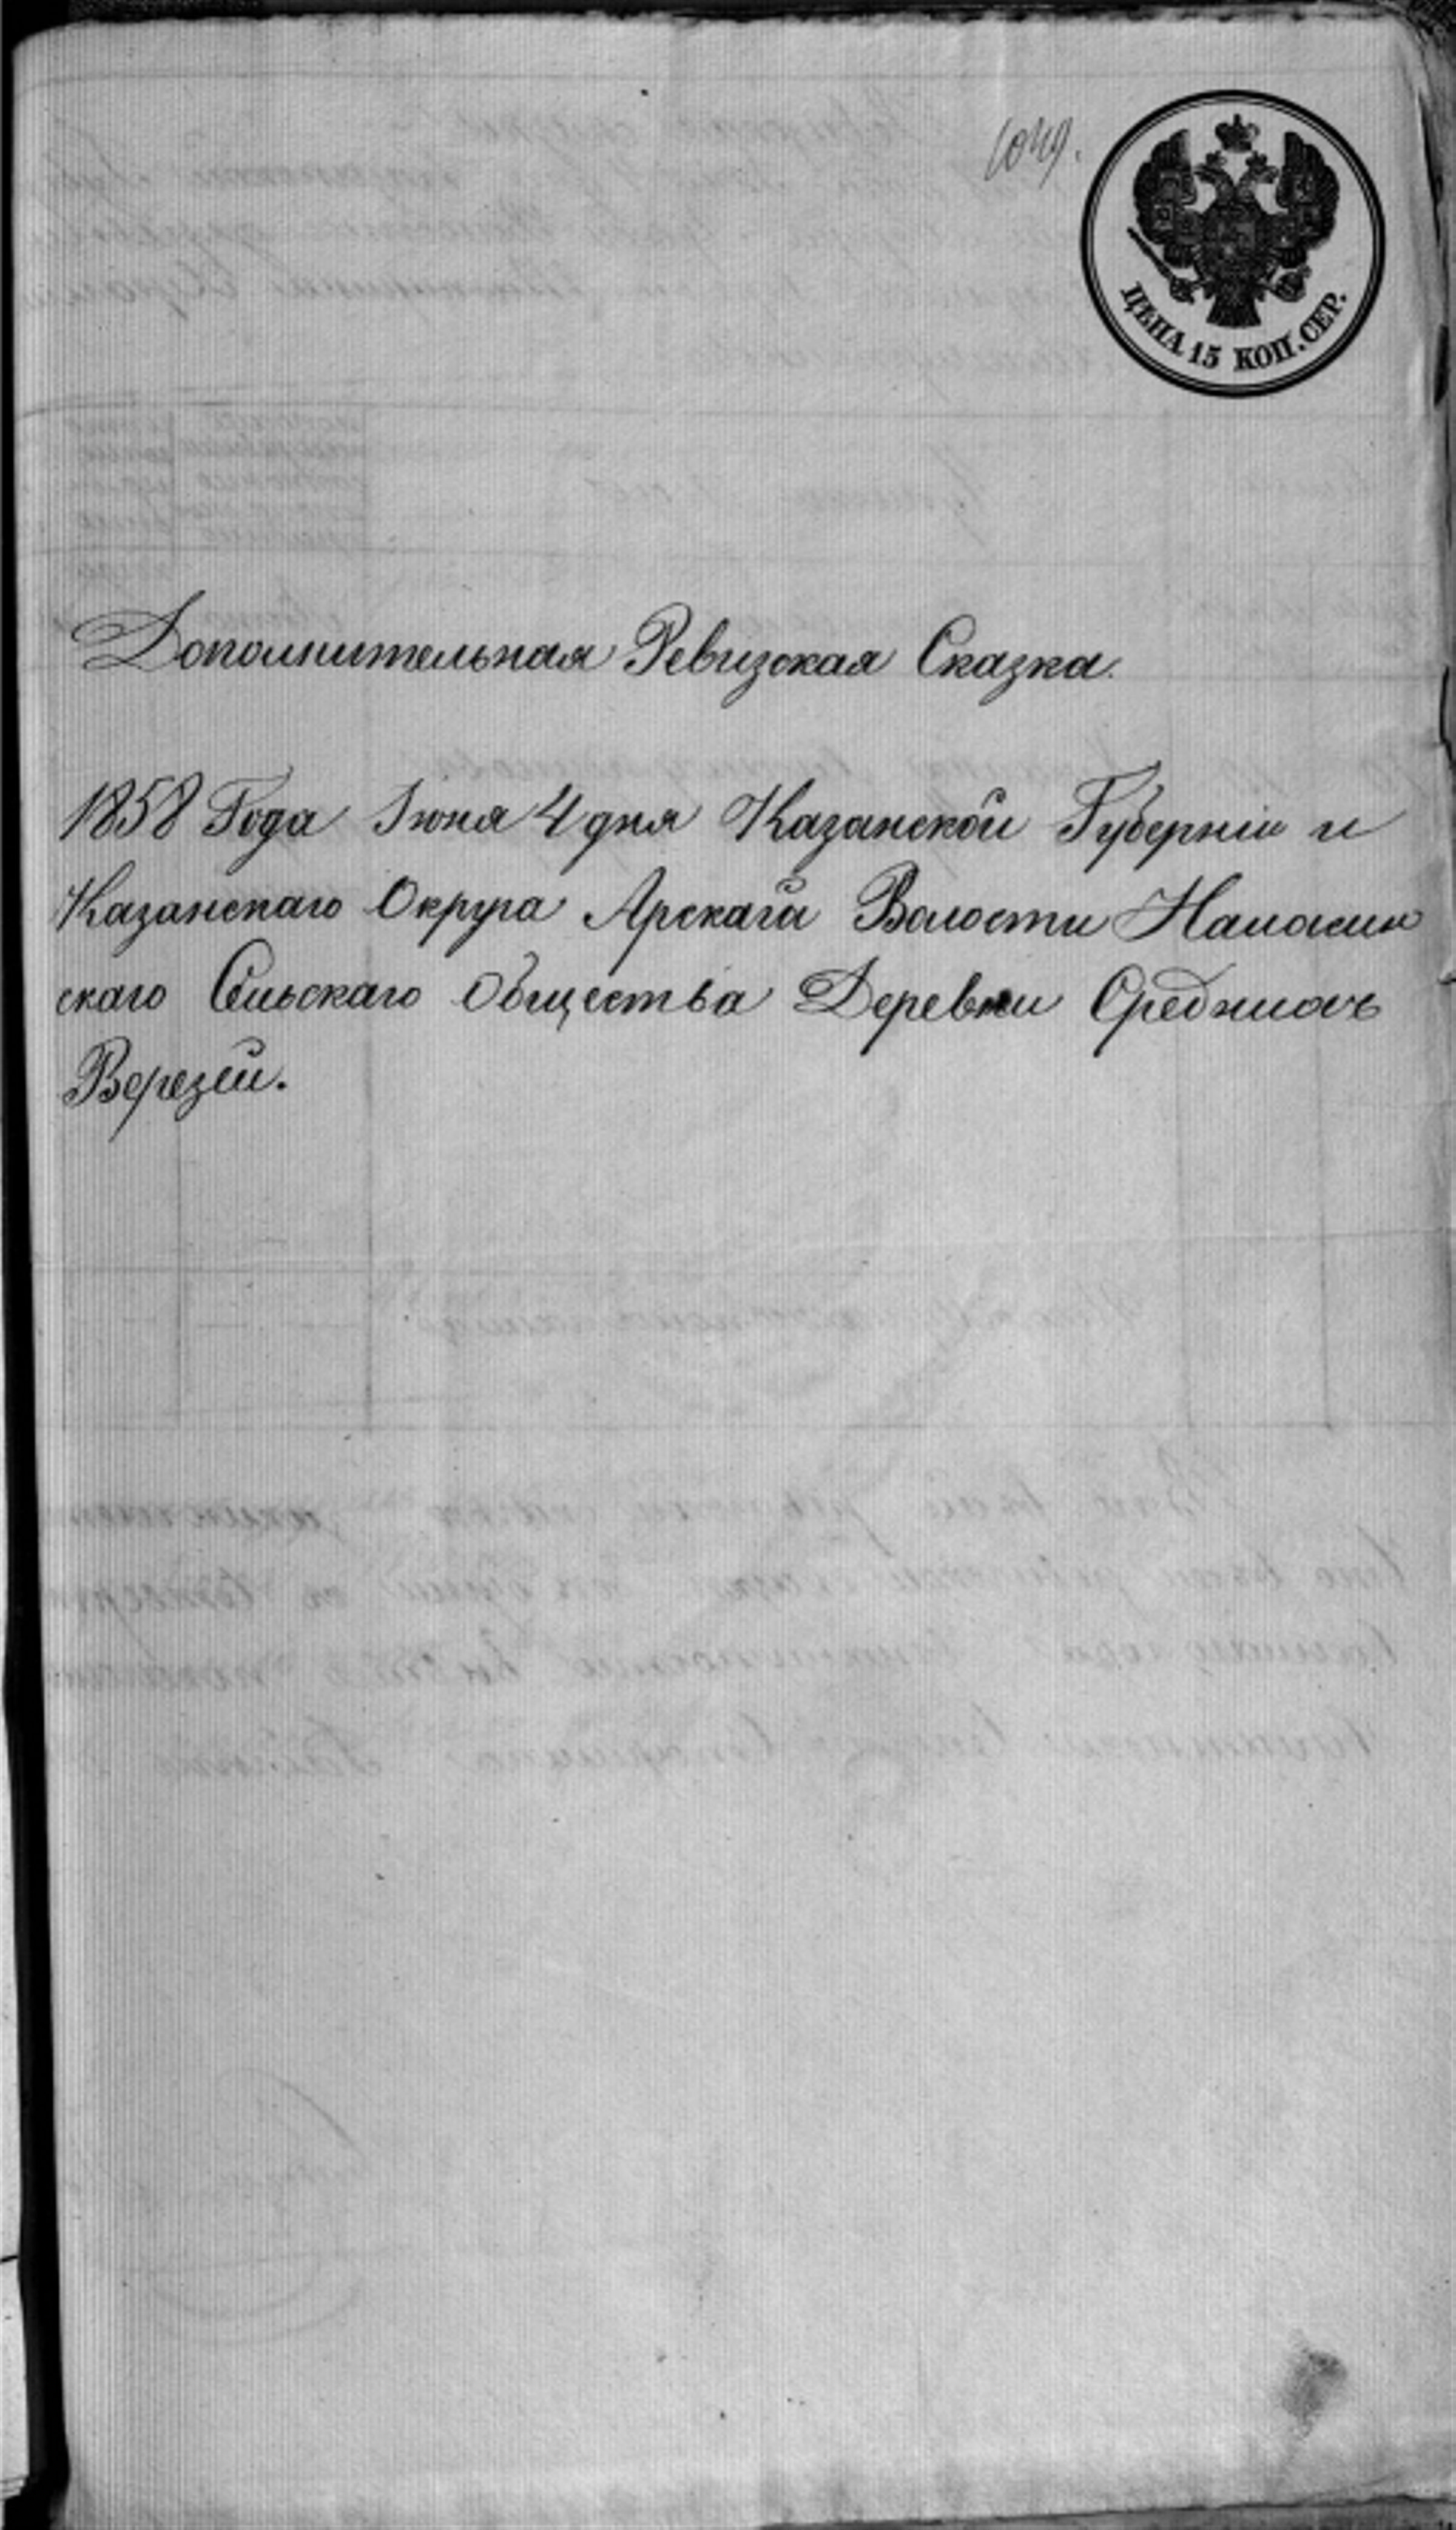 1049.
ЦѢНА 15 КОП. СЕР.
Дополнительная Ревизская Сказка.
1858 Года Июня 4 дня Казанской Губернiи и
Казанскаго Округа Арскаго Волости
скаго Сельскаго Общества Деревни Среднихъ
Верезей.